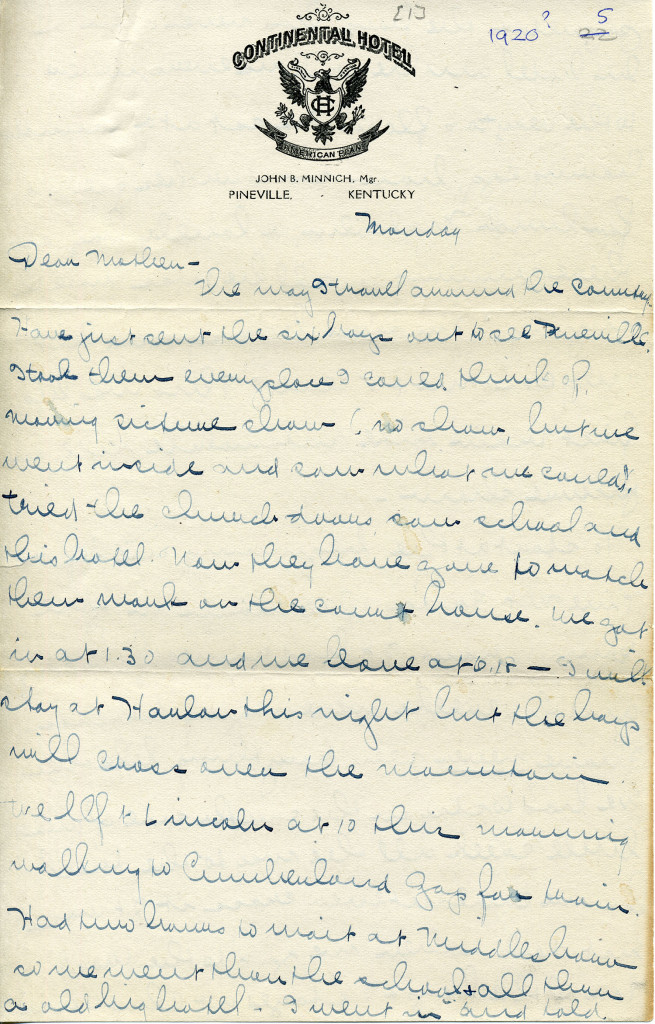 [1]
1920? 22 5
CONTINENTAL HOTEL
CH
AMERICAN PLAN
JOHN B. MINNICH, Mgr.
PINEVILLE, - KENTUCKY
Monday
Dear Mother -
The way I travel around the country.
Have just sent the six boys out to see Pineville.
I took them everyplace I could think of,
moving picture show (no show, but we
went inside and saw what we could),
tried the church doors saw school and
this hotel. Now they have gone to watch
them work on the court house. We got
in at 1.30 and we leave at 6.18 - I will
stay at Harlan this night but the boys
will cross over the mountain
We left Lincoln at 10 this morning
walking to Cumberland Gap for train.
Had two hours to wait at Middlesboro
so we went thru the school & all thru
a old big hotel - I went in and told